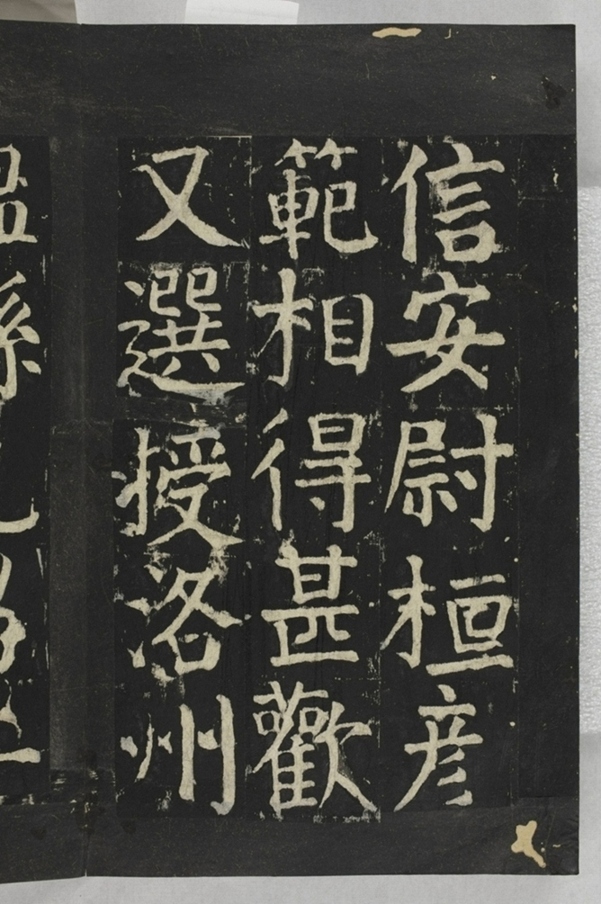 信安尉桓彦
範相得甚歡
又選授洛州